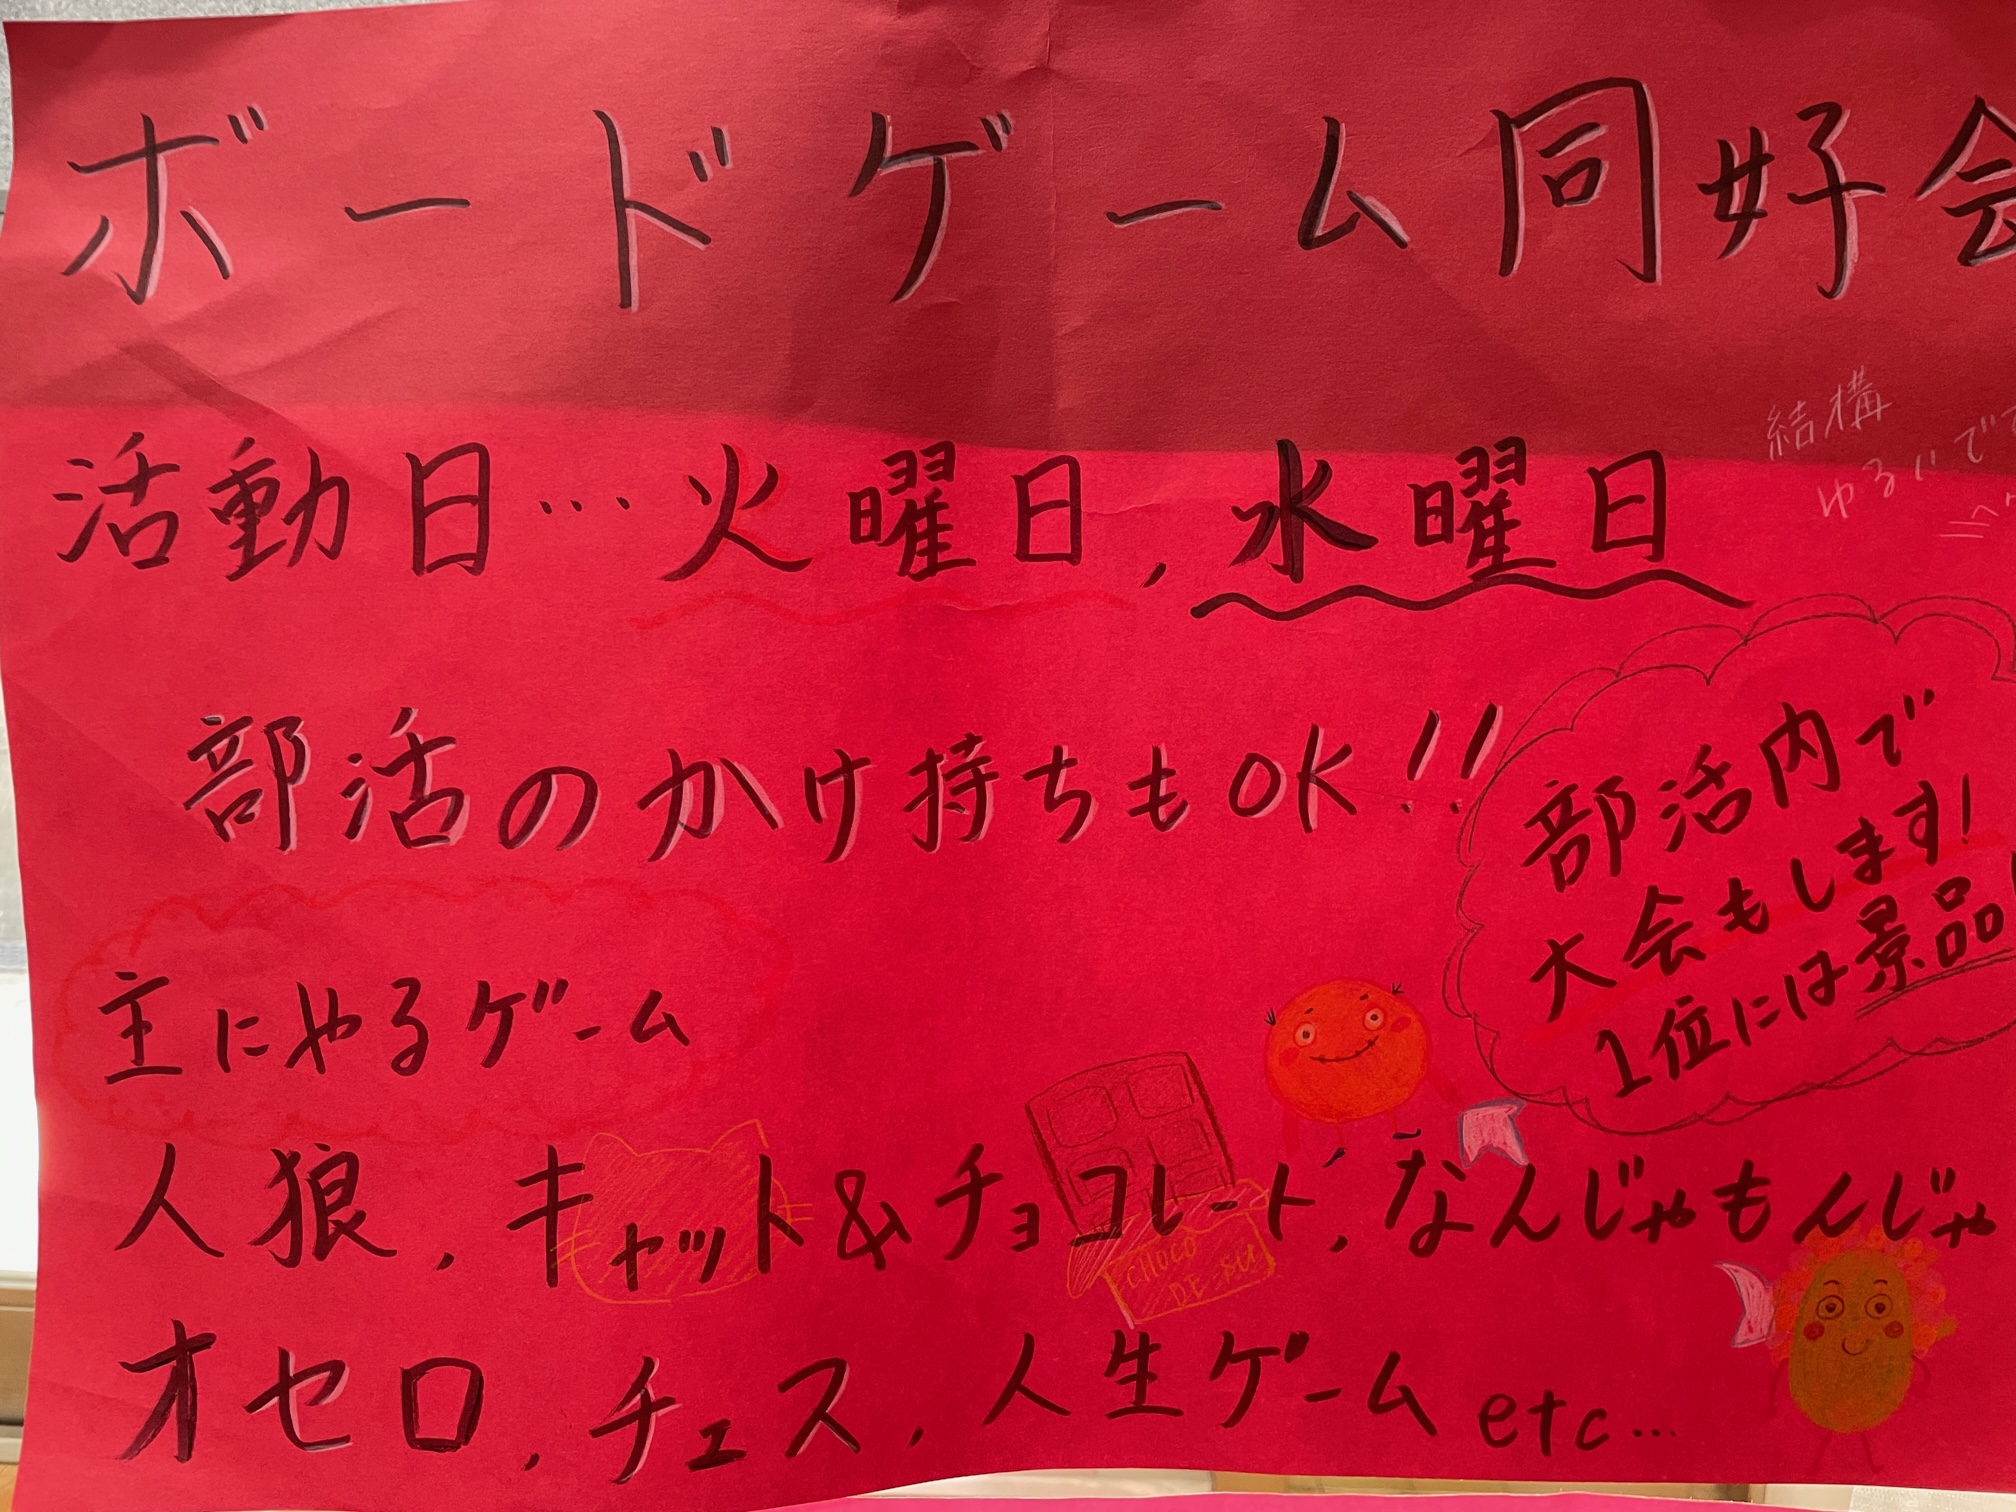 ボードゲーム同好会
活動日… 火曜日, 水曜日
結構
ゆるいで
部活のかけ持ちもOK!!
部活内で
大会もします!
1位には景品
主にやるゲーム
人狼, キャット&チョコレート, なんじゃもんじゃ
CHOCO
オセロ, チェス, 人生ゲーム etc…